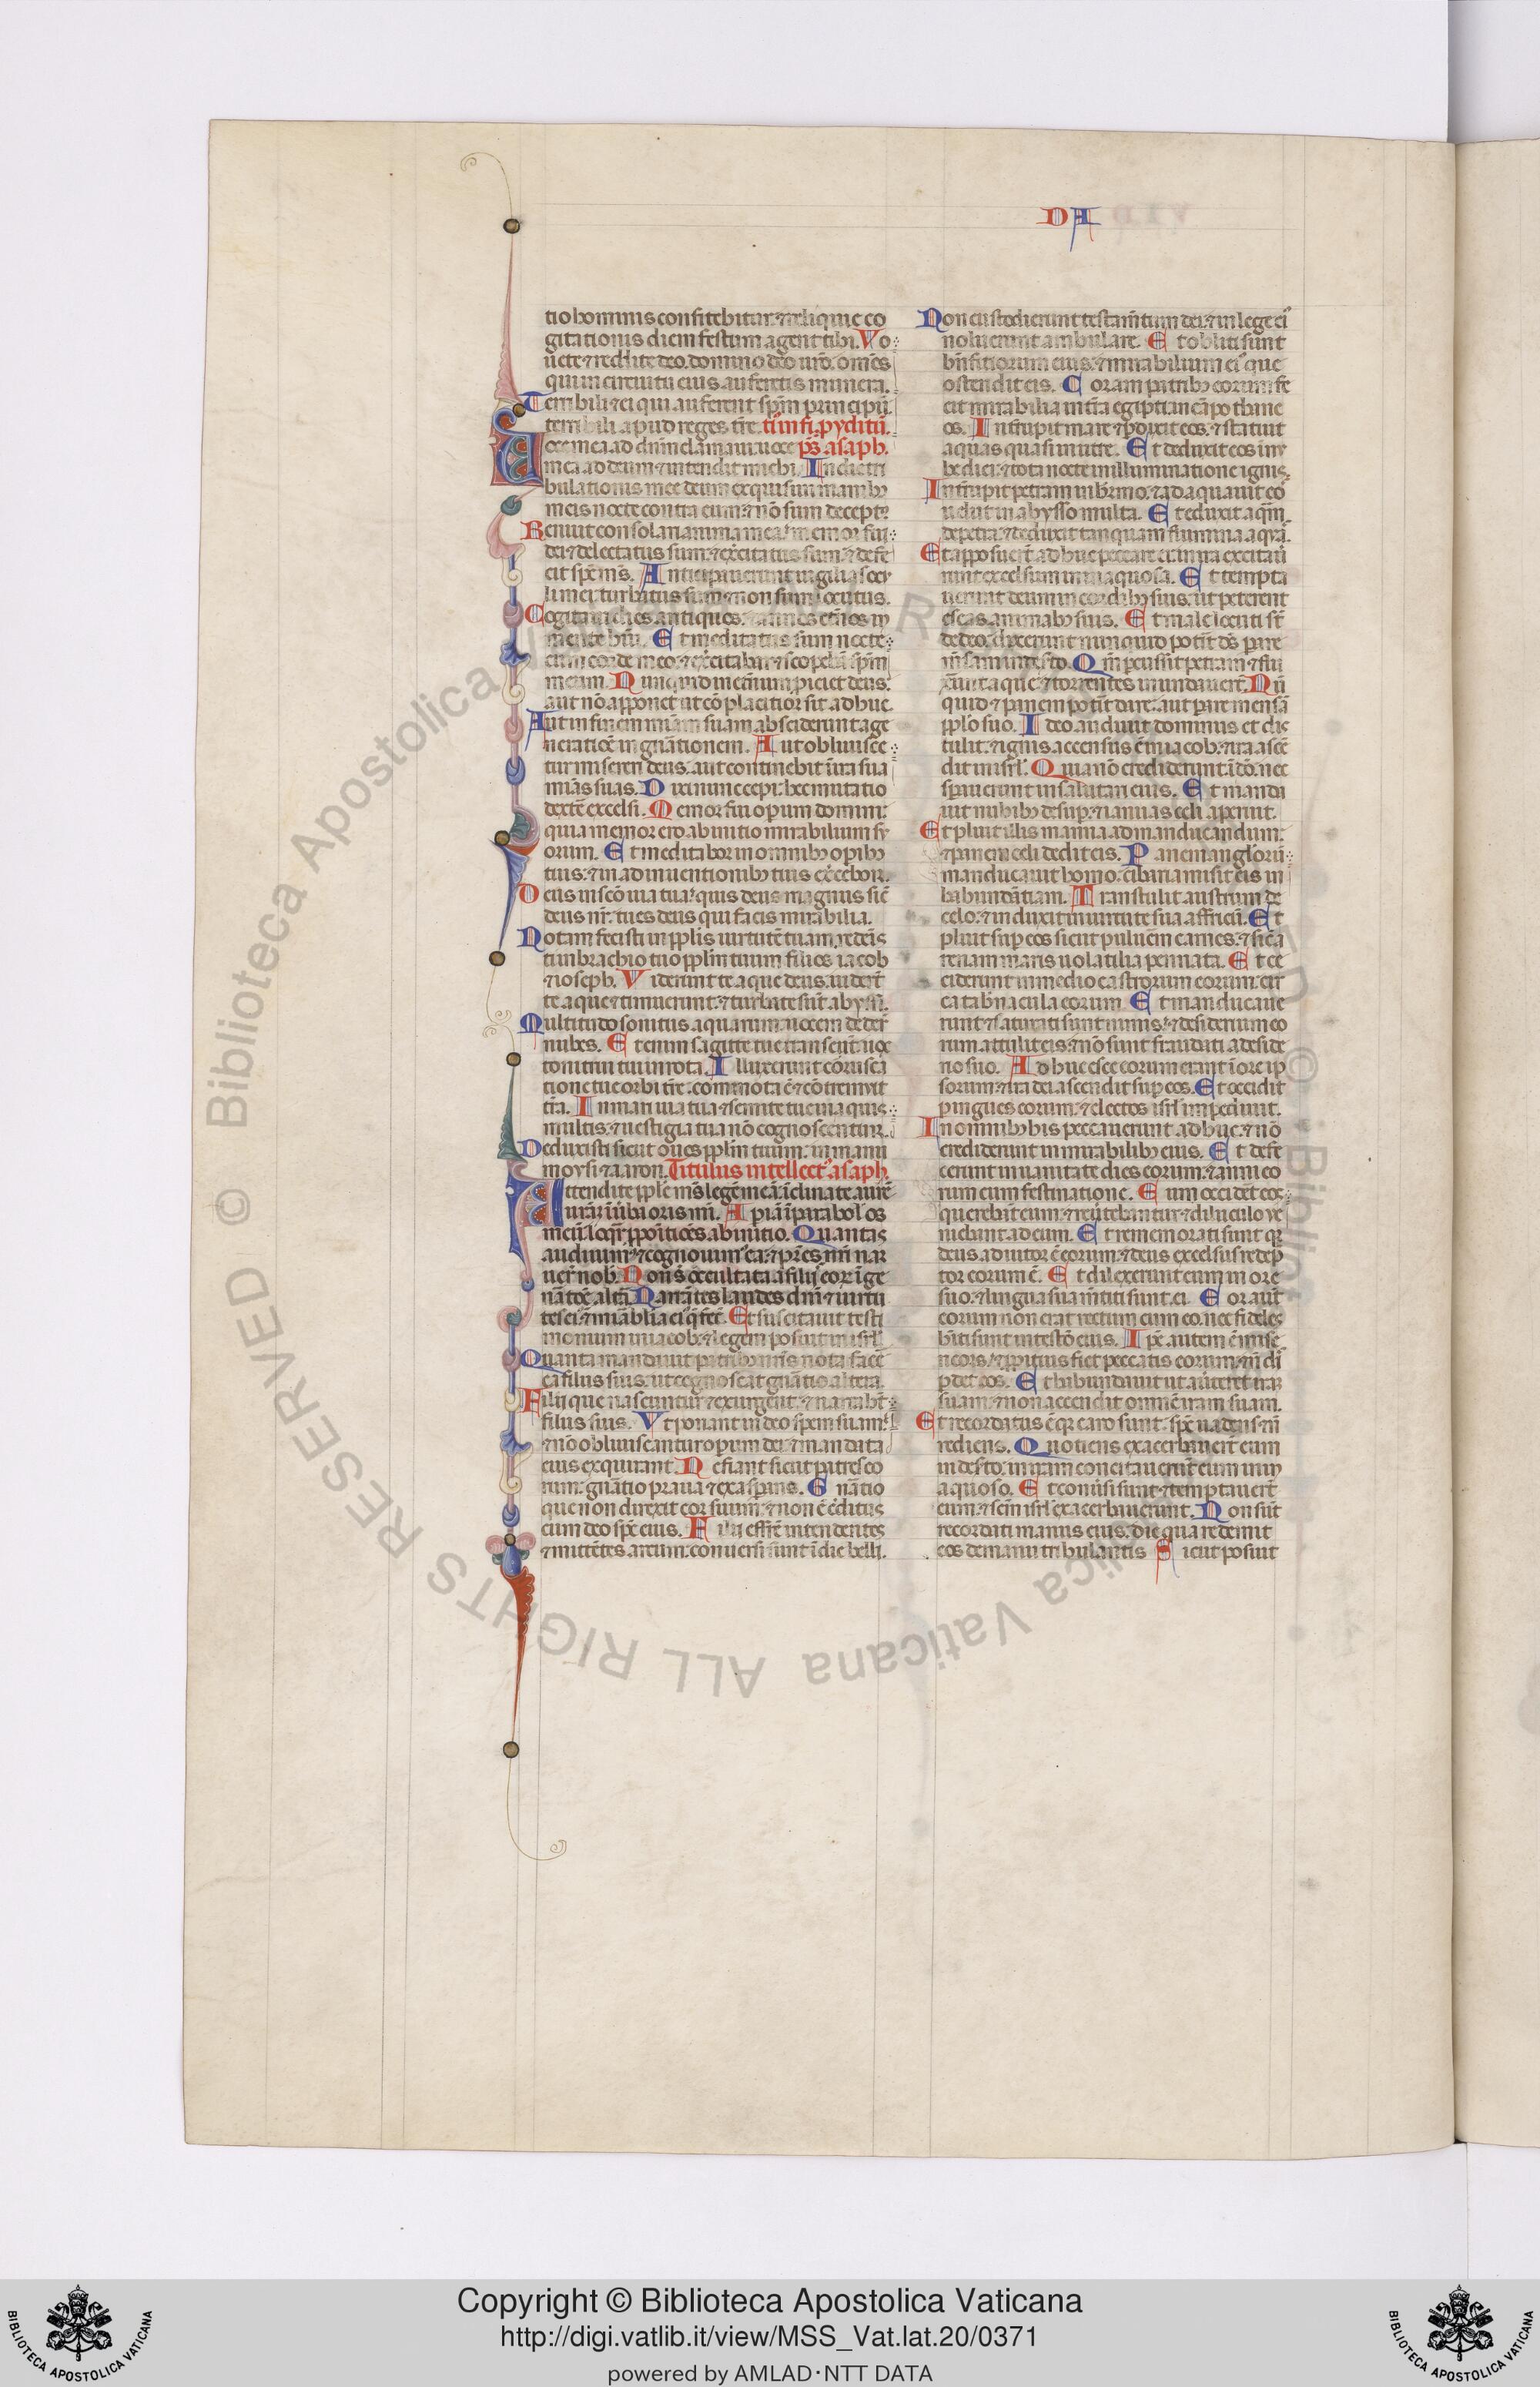 DA
tio hominis confitebitur tͥ ⁊ reliquie co
gitationis diem festum agent tibi. Vo
uete ⁊ reddite deo. domino deo ur̄o. om̄es
qui in circuitu eius aufertis munera.
Terribili ⁊ ei qui aufert sp̄m principū
terribili apud reges tr̄e.
oce mea ad dn̄m clamaui. uoce p̄s asaph.
mea ad deum ⁊ intendit michi. In die tri
bulationis mee deum exquisiui manibꝫ
meis nocte contra eum ⁊ nō sum
Renuit consolari anima mea. memor fui
dei ⁊ delectatus sum. ⁊ exercitatus sum. ⁊ defe
cit sp̄c m̄s. Anticipauerunt uigilias oc
li mei. turbatus sum ⁊ non sum locutus.
Cogitaui dies antiquos. ⁊ annos et̄nos in
mente hui. Et meditatus sum nocte
cum corde meo. ⁊ exercitabar ⁊ scopebā sp̄m
meum. Nunquid in eternum proiciet deus.
aut nō apponet ut cōplacitior sit adhuc
Aut in finem miām suam abscidet
a generatione in gn̄ationem. Aut obliuisce
tur misereri deus. aut continebit ī ira sua
mias suas. Dixi nunc cepi. hec mutatio
dextē excelsi. Memor fui operum domini.
quia memor ero ab initio mirabilium tu
orum. Et meditabor in omnibꝫ opibꝫ
tuis. ⁊ in adinuentionibꝫ tuis exercebor.
Deus in scō uia tua. quis deus magnus sic̄
deus nr̄. tu es deus qui facis mirabilia.
Notam fecisti in pplis uirtutē tuam. redemis
ti in brachio tuo pplm̄ tuum filios iacob
⁊ ioseph. Viderunt te aque deus. uider̄t
te aque ⁊ timuerunt. ⁊ turbate sūt abyssi.
Multitudo sonitus aquarum. uocem deder̄
nubes. Etenim sagitte tue transeūt. uox
tonitrui tui in rota. Illuxerunt coruscā
tiones tue orbi tr̄e. commota ē ⁊ cōtremuit
tr̄a. In mari uia tua ⁊ semite tue in aquis
multis. ⁊ uestigia tua nō cognoscentur.
Deduxisti sicut oues pplm̄ tuum. in manu
moysi ⁊ aaron. Titulus intellect' asaph.
Attendite pple m̄s legē meā. īclinate aurē
urām ī ūba oris mī. Aperiā ī parabol' os
meū. loqr̄ ppōitiōes ab initio. Quantas
audiuim' ⁊ cognouim' ea. ⁊ pr̄es nr̄i narr
auer̄ nob. Non s̄ occultata a filijs eoꝝ ī ge
nātiōe altā. Narrātes laudes dn̄i ⁊ uirtu
tes ei' ⁊ mirabilia ei' q̄ fec̄. Et suscitauit testi
monium in iacob. ⁊ legem posuit in isrl
Quanta mandauit patribꝫ nr̄is nota facē
ea filiis suis. ut cognoscat gn̄atio altera.
Filij qui nascuntur ⁊ exurgent. ⁊ narrabūt
filiis suis. Vt ponant in deo spem suam.
⁊ nō obliuiscantur operum dei ⁊ mandata
eius exquirant. Ne fiant sicut patres eo
rum. gn̄atio praua ⁊ exasperans. Gn̄atio
que non direxit cor suum. ⁊ non ē c̄ditus
cum deo sp̄c eius. Filii effrē intendentes
⁊ mittētes arcum. conuersi sunt ī die belli.
Non custodierunt testam̄tum dei. ⁊ in lege ei'
noluerunt ambulare. Et obliti sunt
bn̄fitiorum eius. ⁊ mirabilium ei' que
ostendit eis. Coram patribꝫ eorum fe
cit mirabilia in tr̄a egipti. in cāpo thane
os. Interrupit mare ⁊ pduxit eos. ⁊ statuit
aquas quasi in utre. Et deduxit eos in nu
be diei. ⁊ tota nocte in illuminatione ignis.
Interrupit petram in hermo. ⁊ adaquauit eos
uelut in abysso multa. Et eduxit aqm̄
de petra. ⁊ deduxit tanquam flumina aqus.
Et apposuert̄ adhuc peccare ei. in ira excitau
runt excelsum in inaquoso. Et tempta
uerunt deum in cordibꝫ suis. ut peterent
escas animabꝫ suis. Et male locuti st̄
de deo. dixerunt nunquid potit ds̄ parare
mensam in desto. Qm̄ percussit petram ⁊ flu
xerūt aque. ⁊ torrentes inundauert̄. Nū
quid ⁊ panem potit dare. aut parare mensā
pplo suo. Ideo audiuit dominus et dis
tulit. ⁊ ignis accensus ē in iacob. ⁊ ira ascē
dit in isrl. Quia nō crediderunt ī dō. nec
sperauerunt in salutari eius. Et manda
uit nubibꝫ desup. ⁊ ianuas celi aperuit.
Et pluit illis manna ad manducandum.
⁊ panem celi dedit eis. Panem angelorū
manducauit homo. cibaria misit eis in
habundātiam. Transtulit austrum de
celo. ⁊ induxit in uirtute sua affricū. Et
pluit sup eos sicut puluerem carnes. ⁊ sic̄ a
renam maris uolatilia pennata. Et ce
ciderunt in medio castrorum eorum. cir
ca tabnacula eorum. Et manducaue
runt ⁊ saturati sunt nimis. ⁊ desiderium eo
rum attulit eis. nō sunt fraudati a deside
rio suo. Adhuc esce eorum erant ī ore ip
sorum. ⁊ ira dei ascendit sup eos. Et occidit
pingues eorum. ⁊ electos isrl impediuit.
In omnibꝫ his peccauerunt adhuc. ⁊ nō
crediderunt in mirabilibꝫ eius. Et defe
cerunt in uanitate dies eorum. ⁊ anni eo
rum cum festinatione. Cum occidēt eos
querebāt eum. ⁊ reūtebantur. ⁊ diluculo ue
niebant ad eum. Et rememorati sunt qꝫ
deus adiutor ē eorum. ⁊ deus excelsus redēp
tor eorum ē. Et dilexerunt eum in ore
suo. ⁊ lingua sua mētiti sunt ei. Cor aut̄
eorum non erat rectum cum eo. nec fideles
hīti sunt in testō eius. Ipe autem ē mise
ricors. ⁊ ppitius fiet peccatis eorum. ⁊ nō dis
pdet eos. Et habundauit ut auerteret iram
suam. ⁊ non accendit omnē iram suam.
Et recordatus ē qꝫ caro sunt. sp̄c uadens ⁊ nō
rediens. Quotiens exacerbauert̄ eum
in desto. in iram concitauerūt eum in in
aquoso. Et conūsi sunt ⁊ temptauert̄
eum. ⁊ scm̄ isrl exacerbauerunt. Non sūt
recordati manus eius. die qua redemit
eos de manu tribulantis. Sicut posuit
Copyright © Biblioteca Apostolica Vaticana
http://digi.vatlib.it/view/MSS_Vat.lat.20/0371
powered by AMLAD·NTT DATA
BIBLIOTECA APOSTOLICA VATICANA
BIBLIOTECA APOSTOLICA VATICANA
© Biblioteca Apostolica Vaticana ALL RIGHTS RESERVED